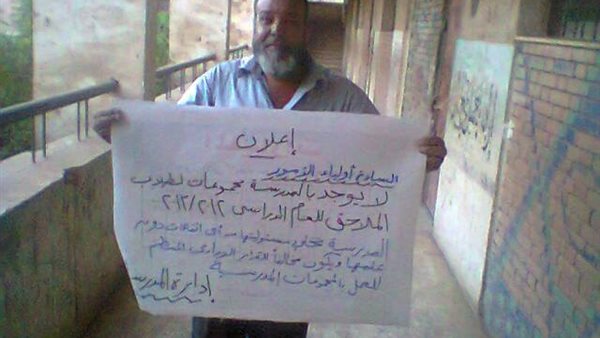 إعلان
السادة أولياء الأمور
لا يوجد بالمدرسة مجموعات لطلاب
الملاحق للعام الدراسى ٢٠١٣/٢٠١٢
المدرسة تخلى مسئوليتها من أى اتفاقات دون
علمها ويكون مخالفاً للقرار الوزارى المنظم
للعمل بالمجموعات المدرسية
إدارة المدرسة